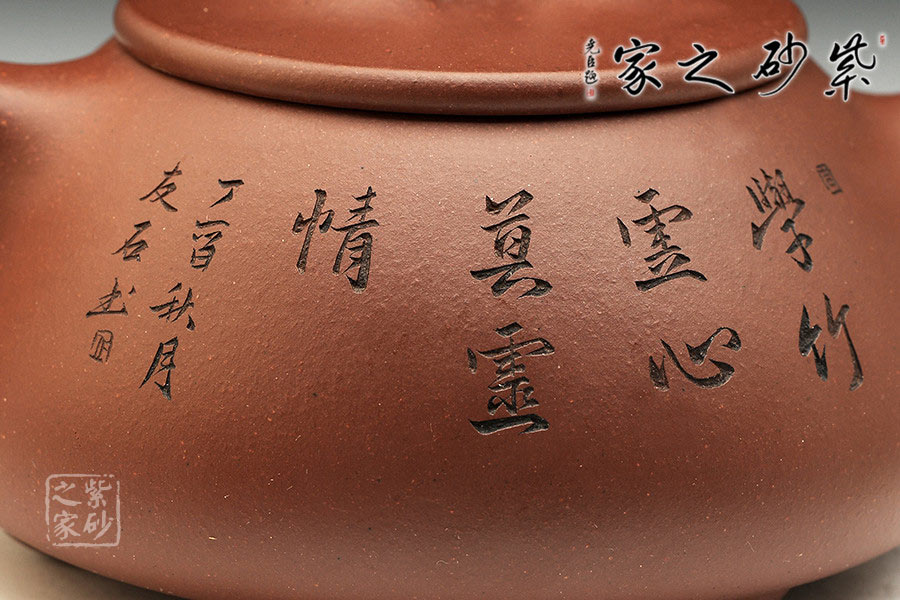 紫砂之家
堯臣題
學竹
虛心
莫虛
情
丁酉秋月
友石书
紫砂
之家